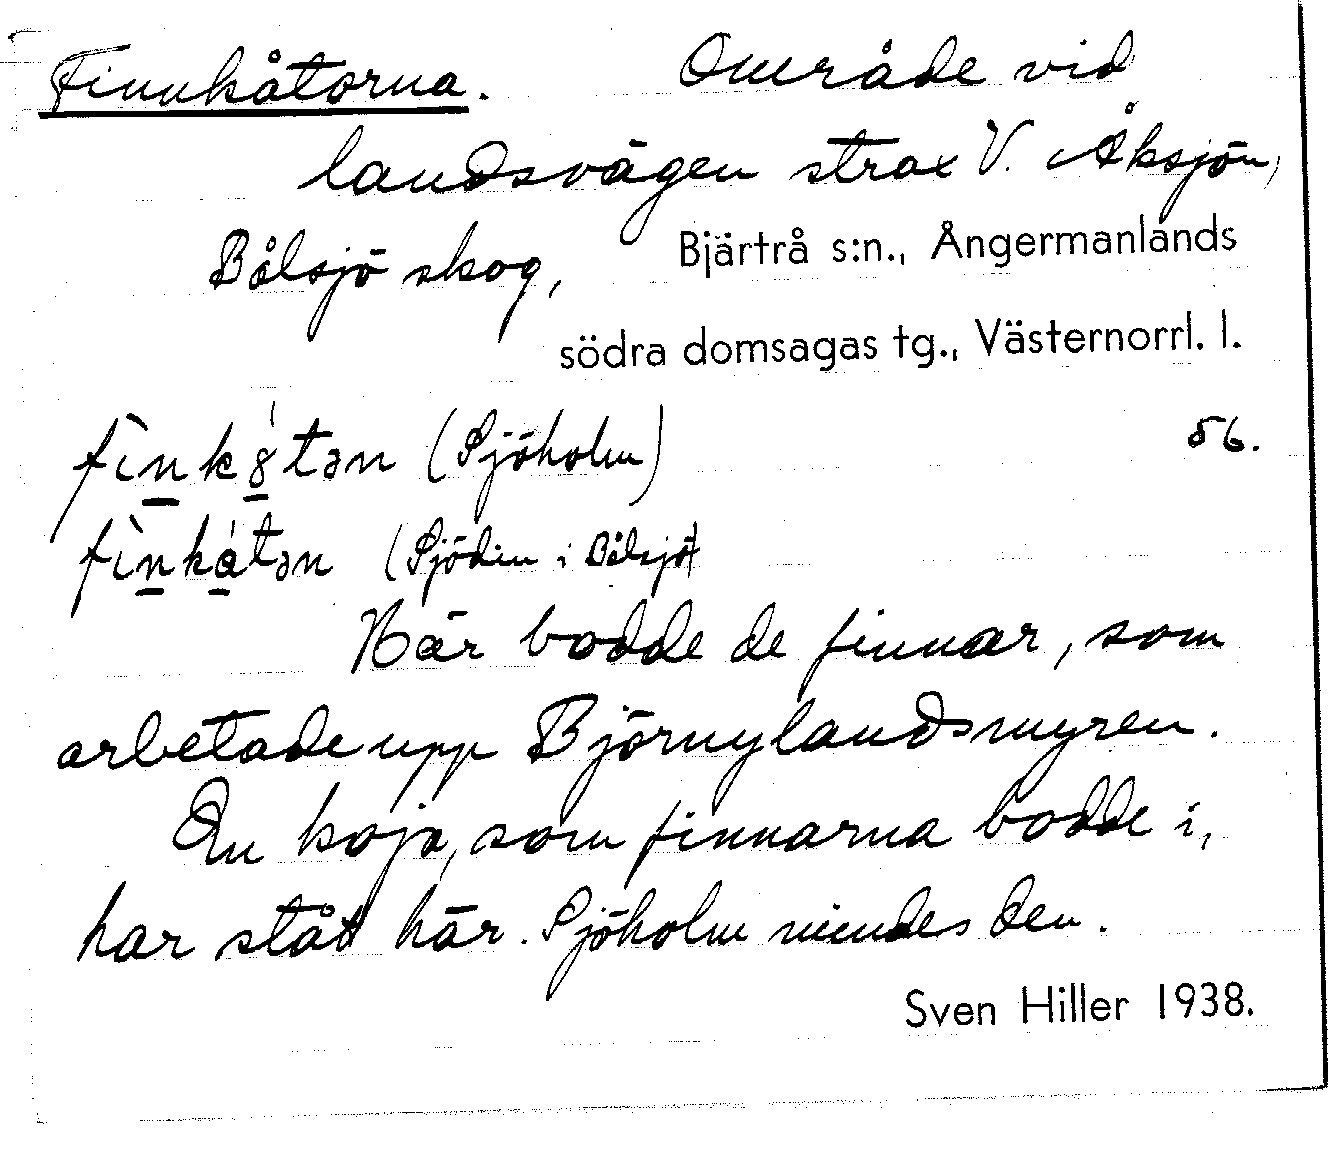 Finnkåtorna. Område vid
landsvägen strax V. Åksjön,
Bålsjö skog, Bjärtrå s:n., Ångermanlands
södra domsagas tg., Västernorrl. l.
(Sjöholm) 56.
(Sjödin i Bålsjö)
Här bodde de finnar, som
arbetade upp Björnylandsmyren.
En koja, som finnarna bodde i,
har stått här. Sjöholm mindes den.
Sven Hiller 1938.